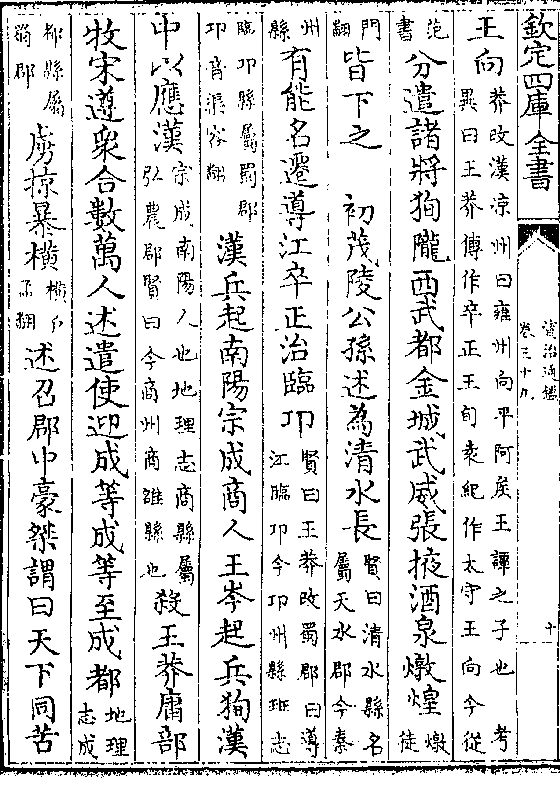 欽定四庫全書
資治通鑑
卷三十九
十
王向莽改漢涼州曰雍州向平阿矦王譚之子也 考
異曰王莽傳作卒正王旬袁紀作太守王向今從
范
書分遣諸將狥隴西武都金城武威張掖酒泉燉煌燉
徒
門
翻皆下之 初茂陵公孫述為清水長賢曰清水縣名
屬天水郡今秦
州
縣有能名遷導江卒正治臨卭賢曰王莽改蜀郡曰導
江臨卭今卭州縣班志
臨卭縣屬蜀郡
卭音渠容翻 漢兵起南陽宗成商人王岑起兵狥漢
中以應漢宗成南陽人也地理志商縣屬
弘農郡賢曰今商州商雒縣也殺王莽庸部
牧宋遵衆合數萬人述遣使迎成等成等至成都地理
志成
都縣屬
蜀郡虜掠暴橫橫戶
孟翻述召郡中豪桀謂曰天下同苦